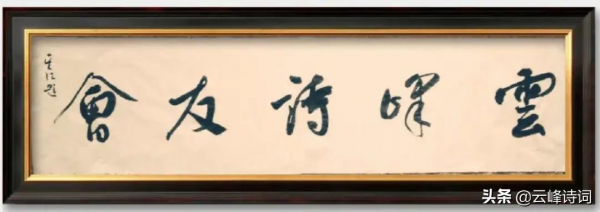 雲峰詩友會
头条 @云峰诗词